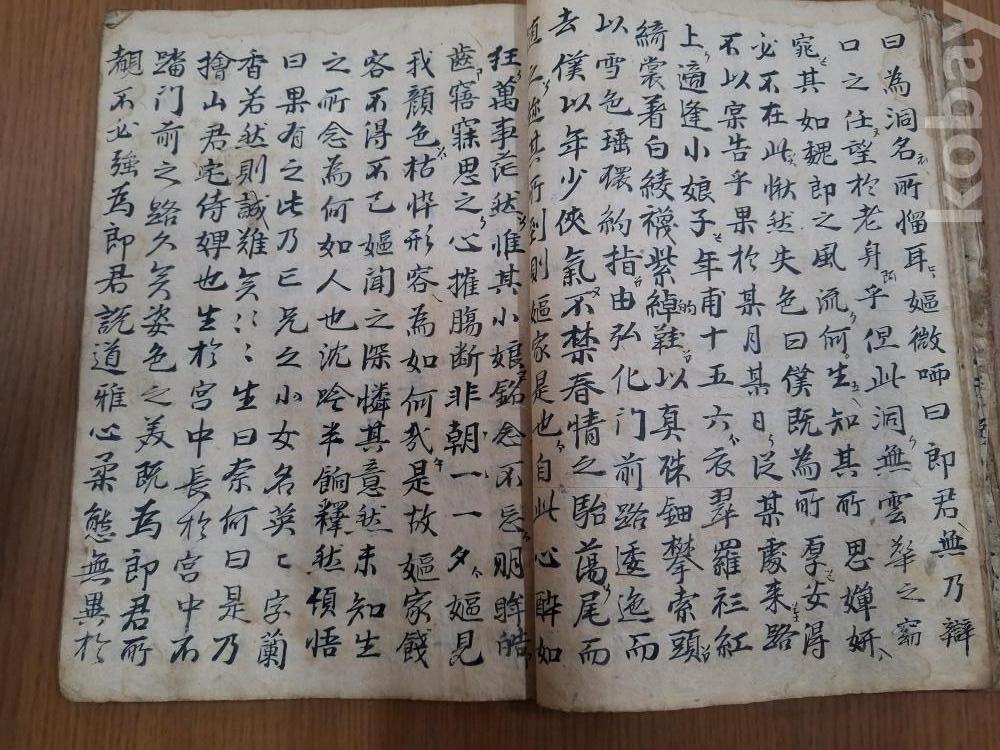 曰為洞名所惱耳嫗微哂曰郎君無乃辯
口之任望於老身乎但此洞無雲華之窈
窕其如魏郎之風流何生知其所思嬋妍
必不在此愀然失色曰僕既為所厚安得
不以寔告乎果於某月某日從某處来路
上適逢小娘子年甫十五六衣翠羅衫紅
綺裳著白綾襪紫綽鞋以真硃鈿攀索頭
以雪色瑤環約指由弘化门前路逶迤而
去僕以年少俠氣不禁春情之駘蕩尾而
其所到則嫗家是也自此心醉如
狂萬事茫然惟其小娘銘念不忘明眸皓
齒寤寐思之心摧腸断非朝一一夕嫗見
我顔色枯悴形容為如何哉是故嫗家餞
客不得不已嫗闻之深憐其意然未知生
之所念為何如人也沈吟半餉釋然頓悟
曰果有之此乃亡兄之小女名英〻字蘭
香若然則誠難矣〻〻生曰奈何曰是乃
擔山君宅侍婢也生於宮中長於宮中不
踏门前之路久矣姿色之美既為郎君所
覩不必強為郎君説道雅心柔態無異於
kobay